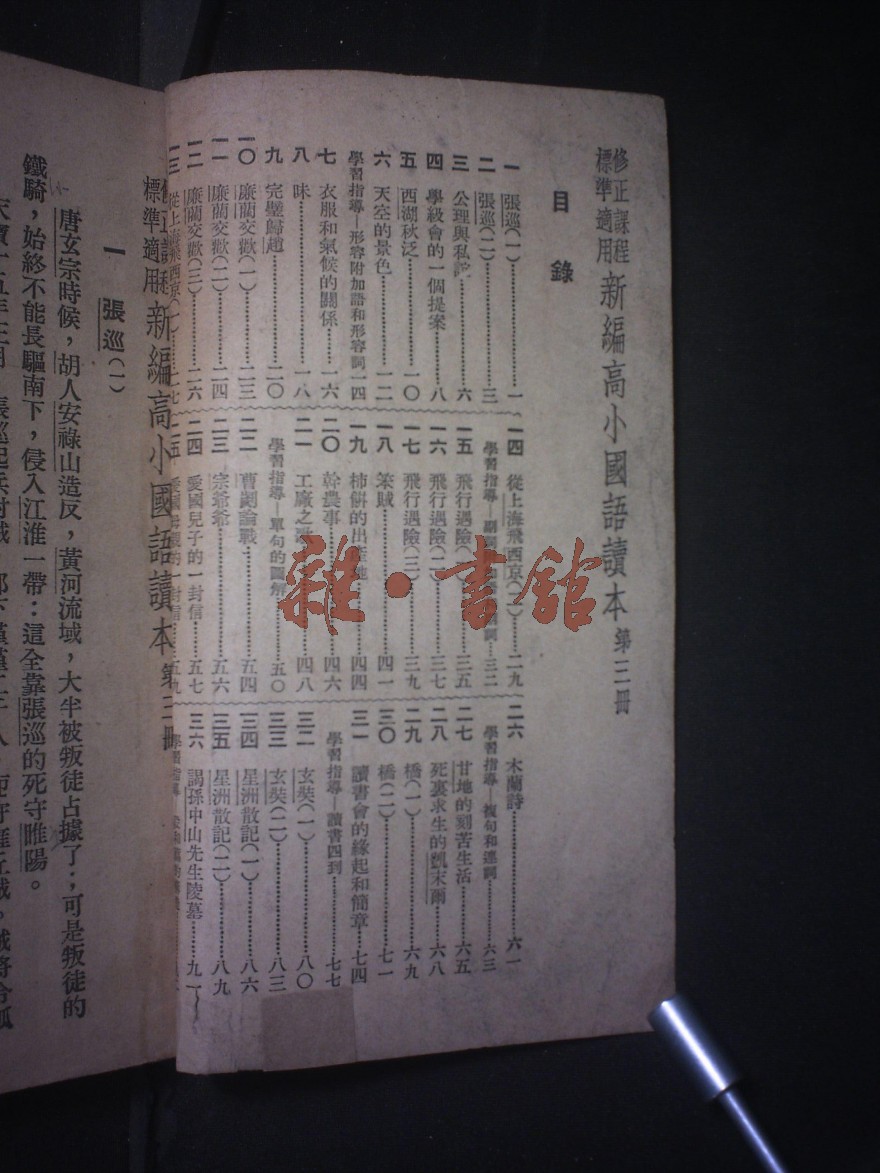 修正課程
標準適用
新編高小國語讀本 第三冊
目錄
一 張巡(一)………一
二 張巡(二)………三
三 公理與私………六
四 學級會的一個提案………八
五 西湖秋泛………一〇
六 天空的景色………一二
學習指導—形容附加語和形容詞 一四
七 衣服和氣候的關係………一六
八 味………一八
九 完璧歸趙………二〇
一〇 廉藺交歡(一)………二三
一一 廉藺交歡(二)………二四
一二 廉藺交歡(三)………二六
一三 從上海飛西京(一)………二七
一四 從上海飛西京(二)………二九
學習指導—副詞 三二
一五 飛行遇險(一)………三五
一六 飛行遇險(二)………三七
一七 飛行遇險(三)………三九
一八 笨賊………四一
一九 柿餅的出產地………四四
二〇 幹農事………四六
二一 工廠之歌………四八
學習指導—單句的圖解………五〇
二二 曹劌論戰………五四
二三 宗爺爺………五六
二四 愛國兒子的一封信………五七
二五 愛國 的一封信………五九
二六 木蘭詩………六一
學習指導—複句和連詞………六三
二七 甘地的刻苦生活………六五
二八 死裏求生的凱末爾………六八
二九 橋(一)………六九
三〇 橋(二)………七一
三一 讀書會的緣起和簡章………七四
學習指導—讀書四到………七七
三二 玄奘(一)………八〇
三三 玄奘(二)………八三
三四 星洲散記(一)………八六
三五 星洲散記(二)………八九
三六 謁孫中山先生陵墓………九一
學習指導—
修正課程
標準適用
新編高小國語讀本 第三冊
一 張巡(一)
唐玄宗時候,胡人安祿山造反,黃河流域,大半被叛徒占據了;可是叛徒的
鐵騎,始終不能長驅南下,侵入江淮一帶:這全靠張巡的死守睢陽。
雜·書館